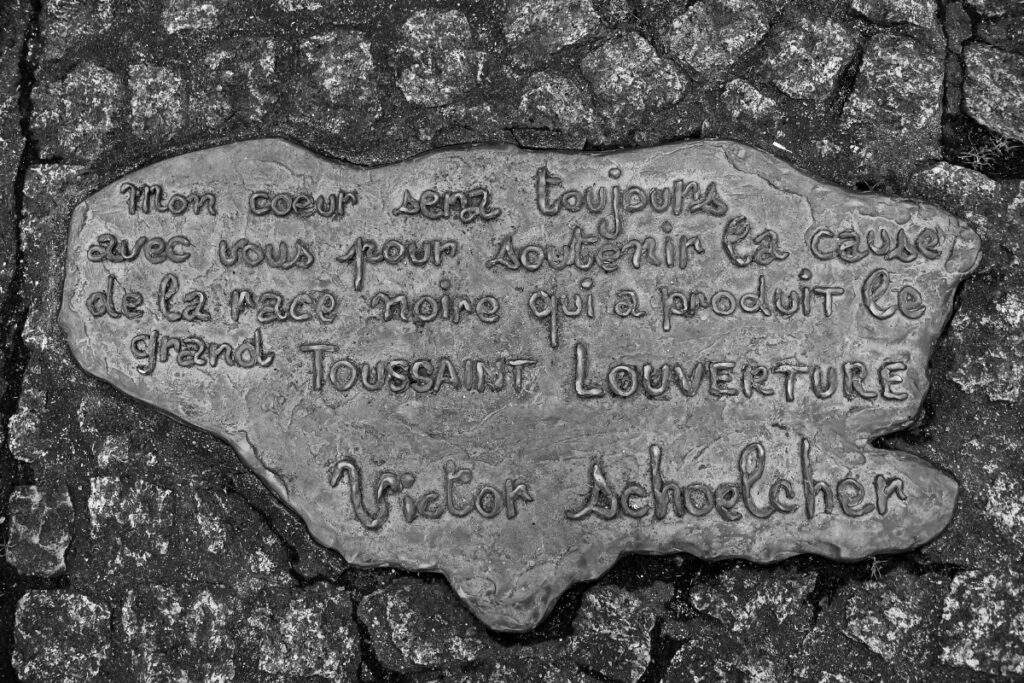 Mon coeur sera toujours
avec vous pour soutenir la cause
de la race noire qui a produit le
grand TOUSSAINT LOUVERTURE
Victor schoelcher